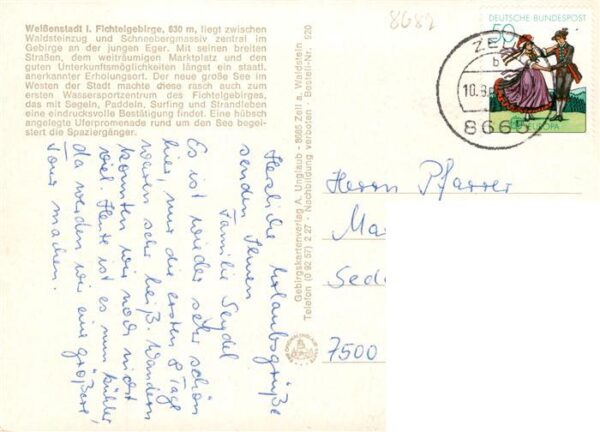 Weißenstadt i. Fichtelgebirge, 630 m, liegt zwischen
Waldsteinzug und Schneebergmassiv zentral im
Gebirge an der jungen Eger. Mit seinen breiten
Straßen, dem weiträumigen Marktplatz und den
guten Unterkunftsmöglichkeiten längst ein staatl.
anerkannter Erholungsort. Der neue große See im
Westen der Stadt machte diese rasch auch zum
ersten Wassersportzentrum des Fichtelgebirges,
das mit Segeln, Paddeln, Surfing und Strandleben
eine eindrucksvolle Bestätigung findet. Eine hübsch
angelegte Uferpromenade rund um den See begei-
stert die Spaziergänger.
Herzliche Urlaubsgrüße
senden Ihnen
Familie Seydel
Es ist wieder sehr schön
hier, nur die ersten 8 Tage
waren sehr heiß. Wandern
konnten wir noch nicht
viel. Heute ist es nun kühler,
da werden wir eine größere
Tour machen.
Gebirgskartenverlag A. Unglaub - 8665 Zell a. Waldstein
Telefon (0 92 57) 2 27 - Nachbildung verboten - Bestell-Nr. 920
8682
DEUTSCHE BUNDESPOST
50
EUROPA
ZELL
b
10.8.
8665
Herrn Pfarrer
Ma
Seda
7500